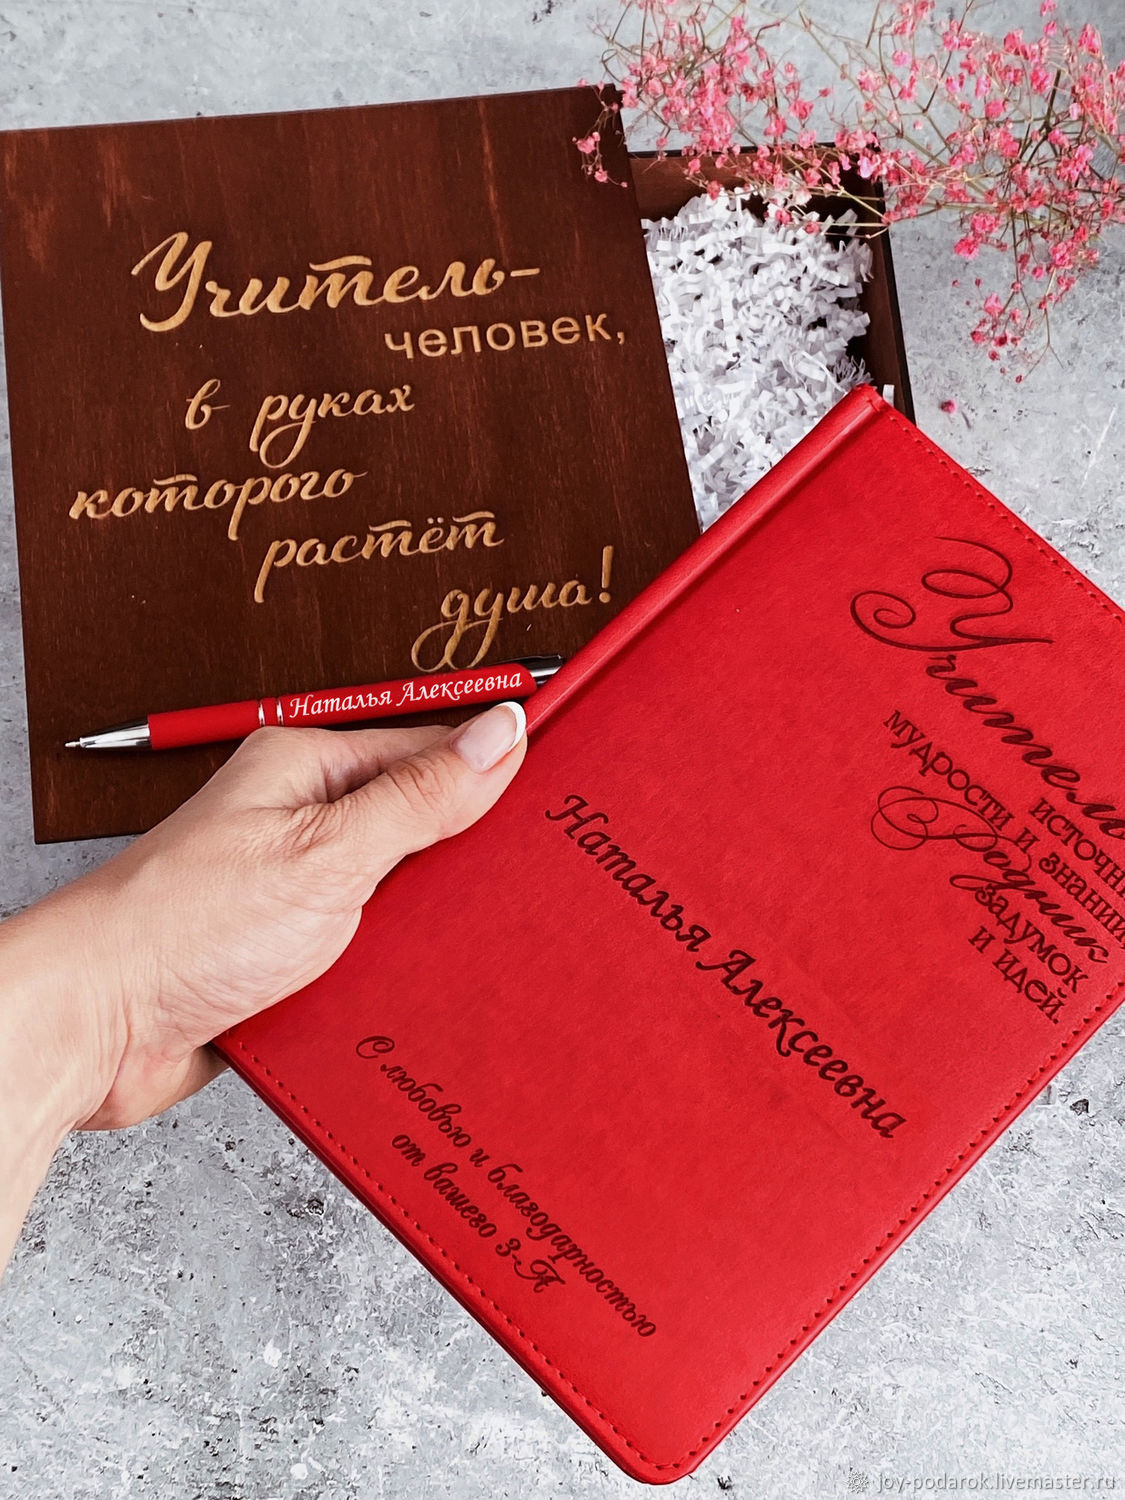 Учитель-
человек,
в руках
которого
растёт
душа!
Наталья Алексеевна
Учитель
источни
мудрости и знаний,
Родник
задумок
и идей.
Наталья Алексеевна
С любовью и благодарностью
от вашего 3-А
joy-podarok.livemaster.ru